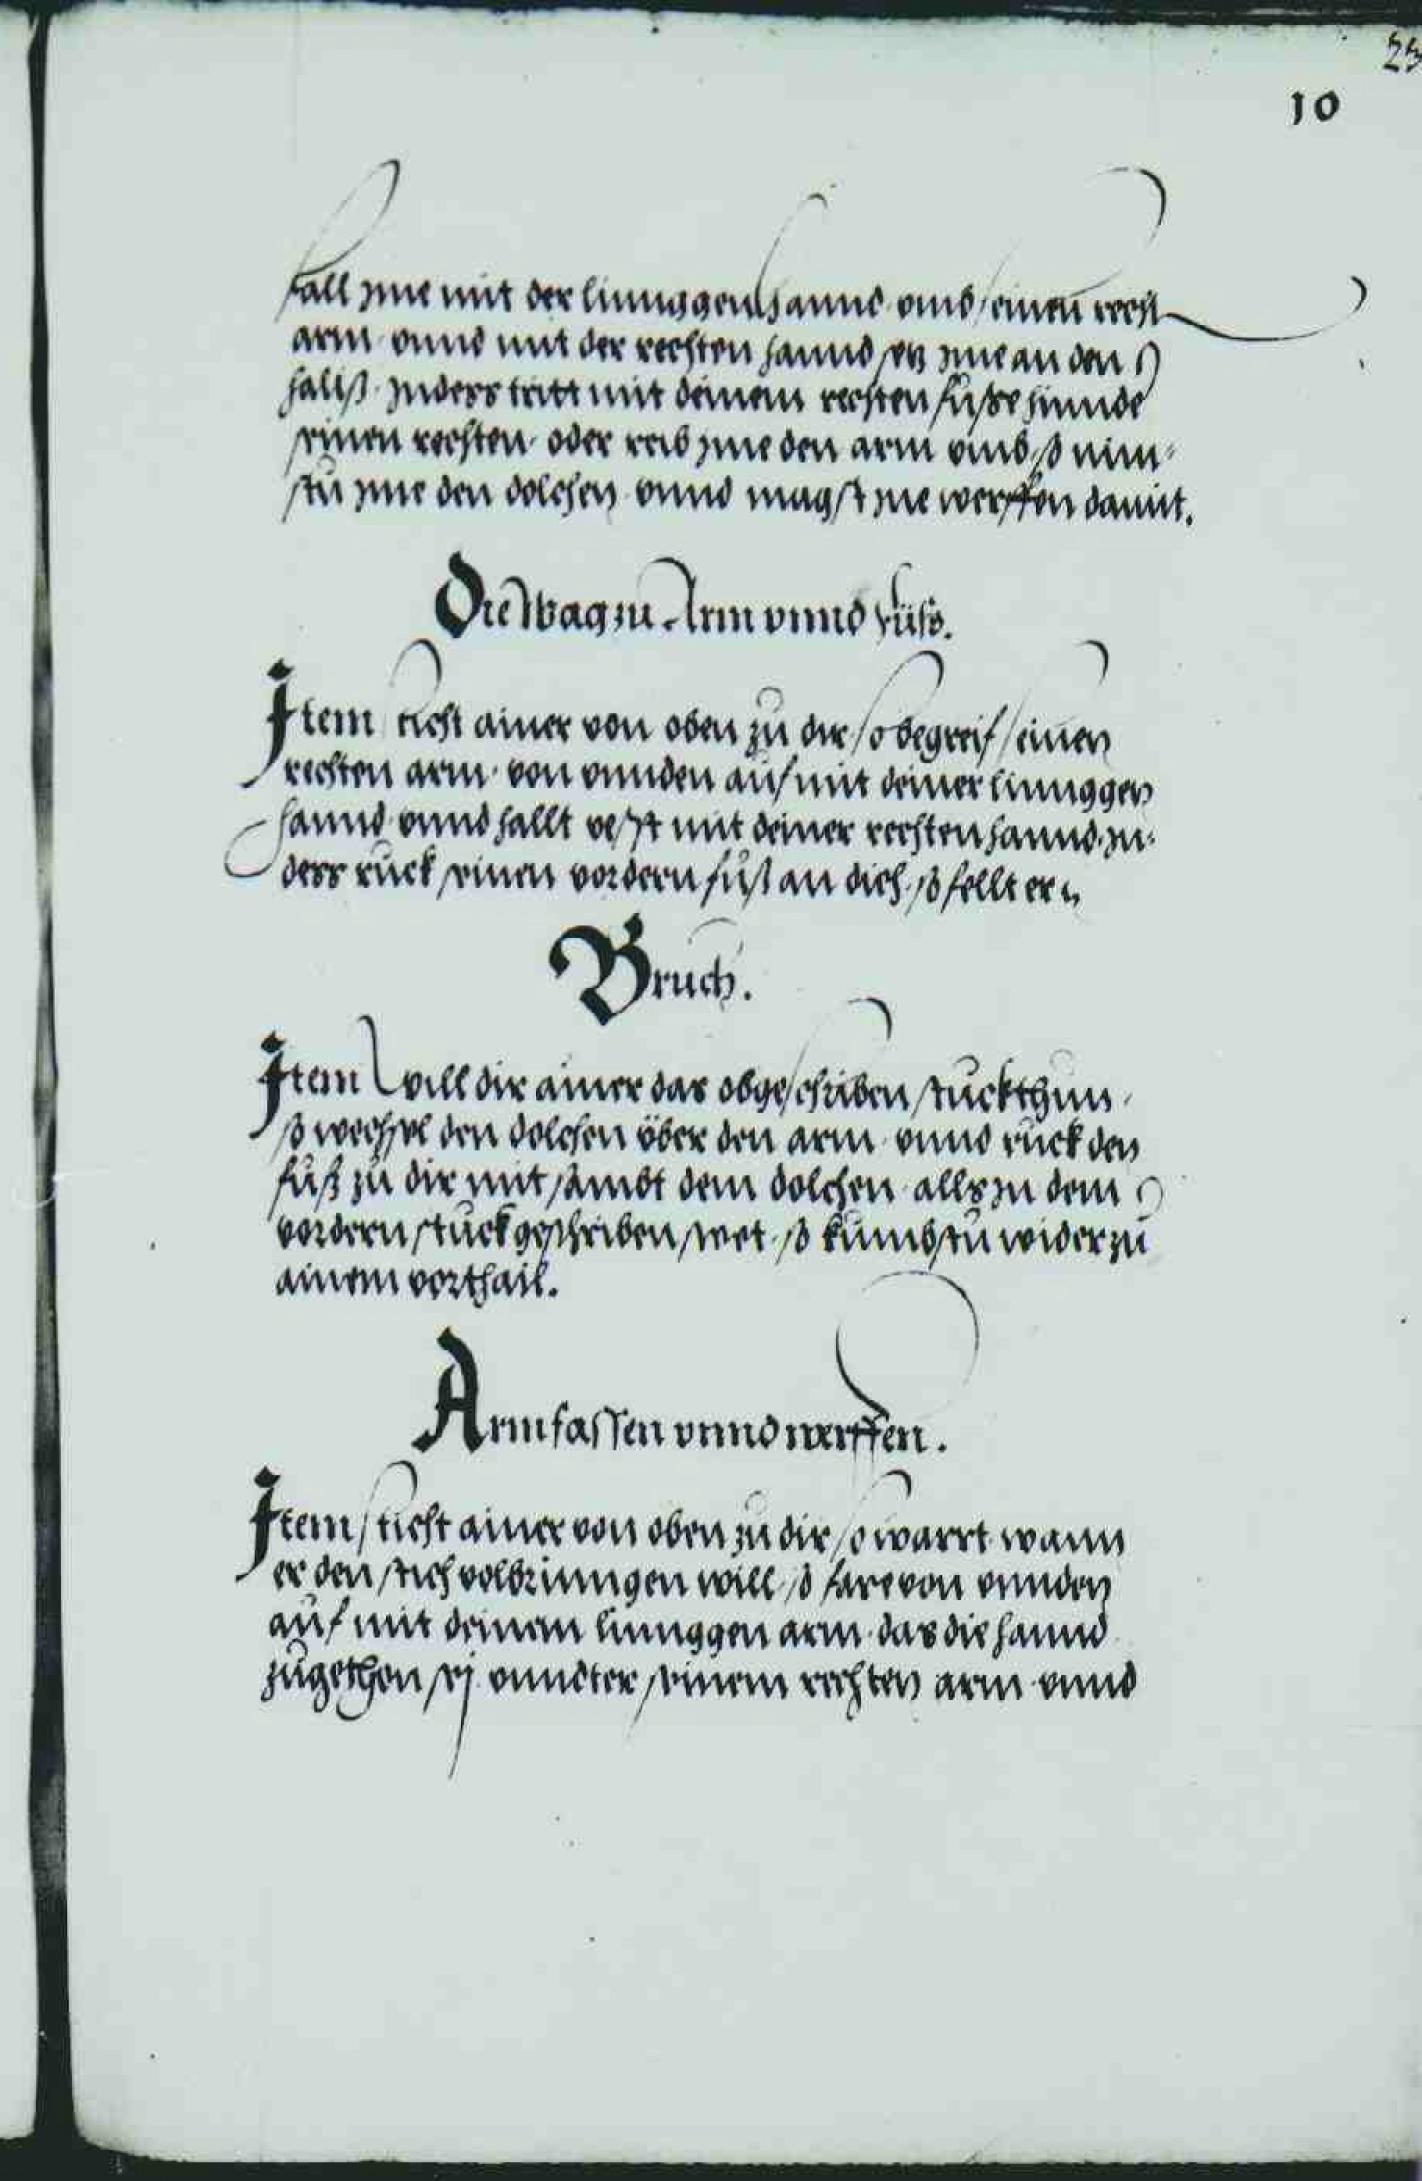 23
10
fall jme mit der linnggen hannd vmb seinen recht
arm vnnd mit der rechten hannd setz jme an den
halls jnndess tritt mit deinem rechten fusse hinnde
seinen rechten oder reib jme den arm vmb so nim
stu jme den dolchen vnnd magst jne werffen damit.
Die Wag zu Arm vnnd Füss.
Item sticht ainer von oben zu dir so begreif seinen
rechten arm von vnnden auf mit deiner linnggen
hannd vnnd hallt vesst mit deiner rechten hannd jn
dess ruck seinen vordern fuß an dich so fellt er
Bruch.
Item Will dir ainer das obgeschriben stuck thun
so wechsel den dolchen über den arm vnnd ruck den
fuß zu dir mit sambt dem dolchen alls zu dem
vordern stuck geschriben stet so kumbstu wider zu
ainem vorthail.
Arm fassen vnnd werffen.
Item sticht ainer von oben zu dir so warrt wann
er den stich volbringen will so fare von vnnden
auf mit deinem linnggen arm das die hannd
zugethon sej vnndter seinem rechten arm vnnd